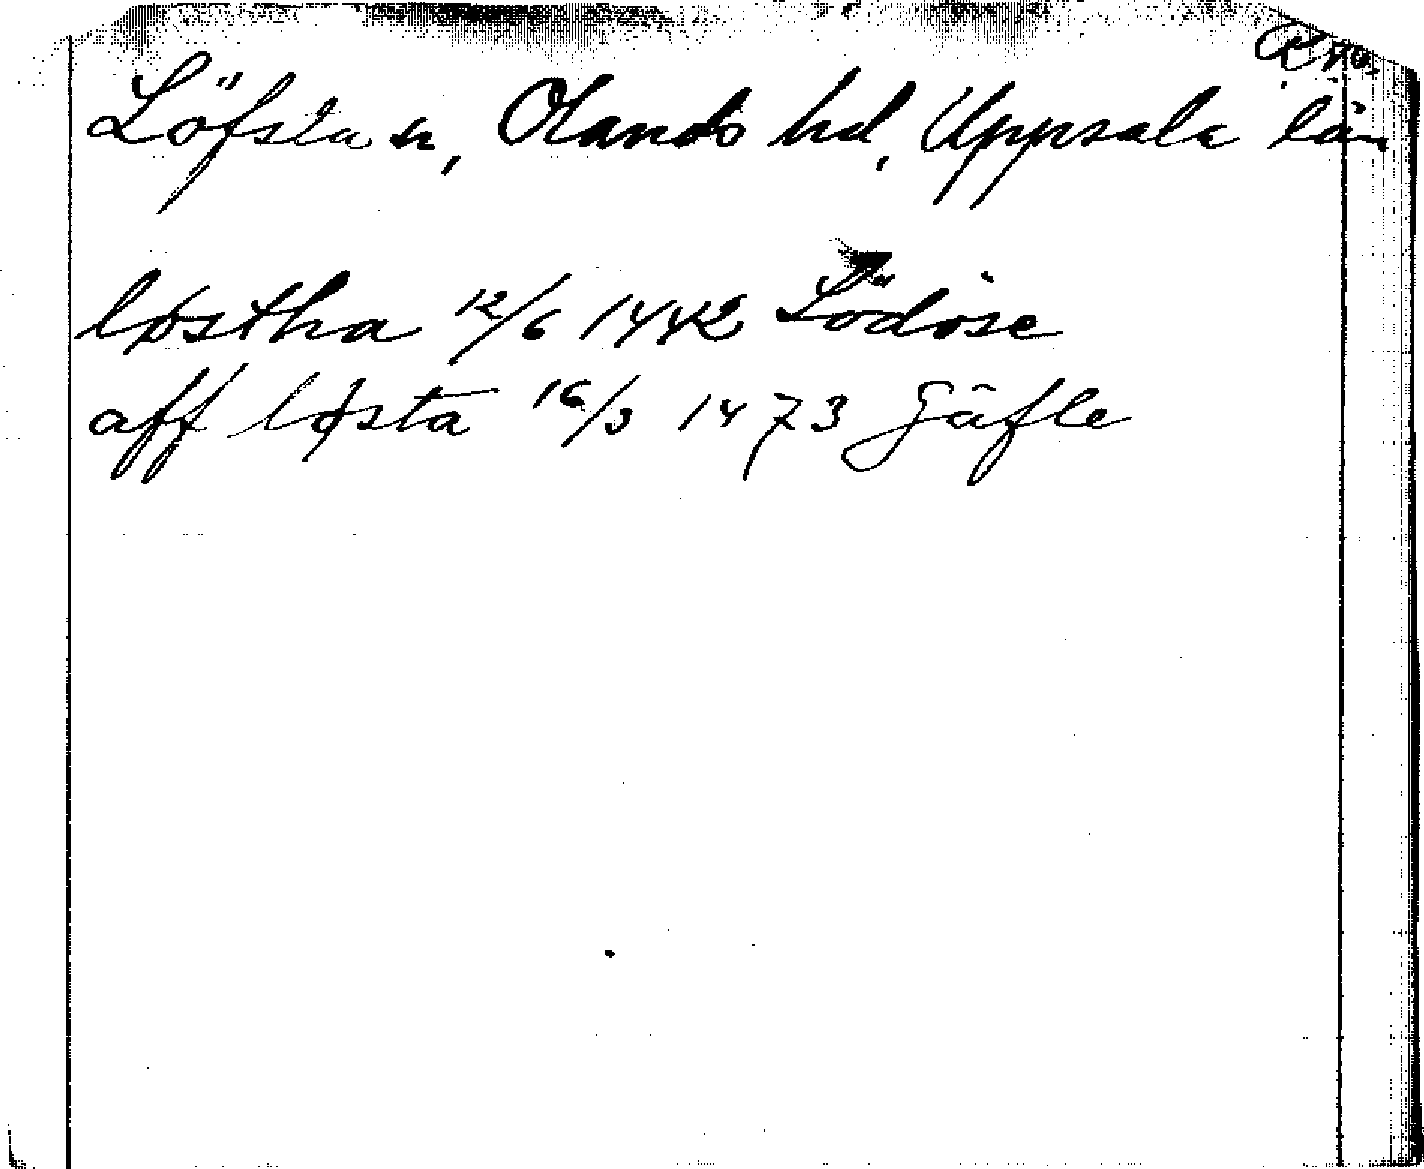 Löfsta sn, Olands hd, Uppsala län
løstha 12/6 1442 Lödöse
aff løsta 16/3 1473 Gäfle